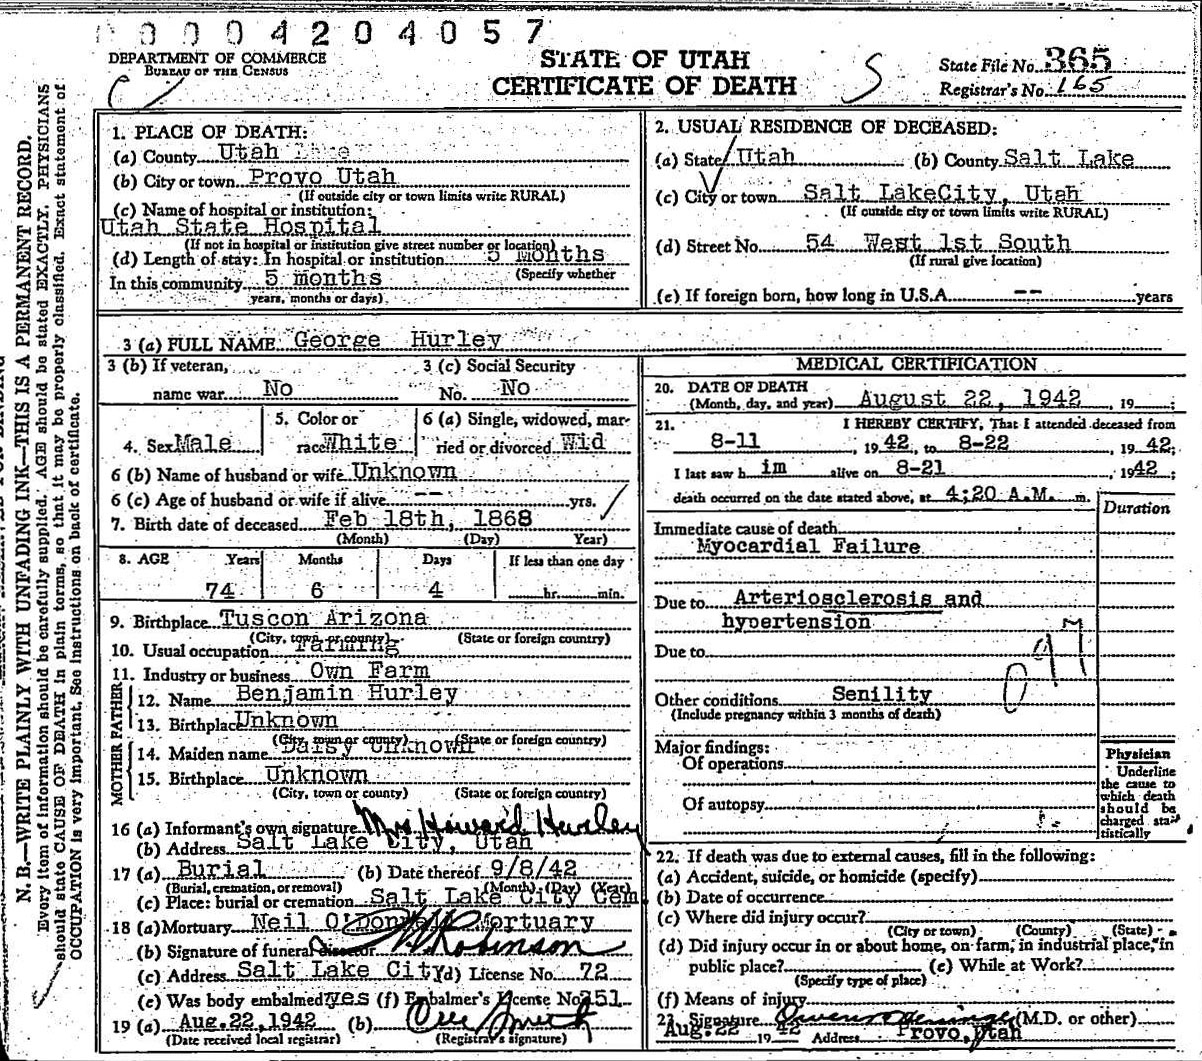 0004204057
DEPARTMENT OF COMMERCE
BUREAU OF THE CENSUS
STATE OF UTAH
CERTIFICATE OF DEATH
S
State File No. 365
Registrar's No. 165
N. B.—WRITE PLAINLY WITH UNFADING INK—THIS IS A PERMANENT RECORD.
Every item of information should be carefully supplied. AGE should be stated EXACTLY. PHYSICIANS
should state CAUSE OF DEATH in plain terms, so that it may be properly classified. Exact statement of
OCCUPATION is very important. See instructions on back of certificate.
1. PLACE OF DEATH:
(a) County Utah
(b) City or town Provo Utah
(If outside city or town limits write RURAL)
(c) Name of hospital or institution:
Utah State Hospital
(If not in hospital or institution give street number or location)
(d) Length of stay: In hospital or institution 5 Months
(Specify whether
In this community 5 months
years, months or days)
2. USUAL RESIDENCE OF DECEASED:
(a) State Utah (b) County Salt Lake
(c) City or town Salt LakeCity, Utah
(If outside city or town limits write RURAL)
(d) Street No. 54 West 1st South
(If rural give location)
(e) If foreign born, how long in U.S.A. -- years
3 (a) FULL NAME George Hurley
3 (b) If veteran, 3 (c) Social Security
name war. No No. No
4. Sex Male 5. Color or race White 6 (a) Single, widowed, married or divorced Wid
6 (b) Name of husband or wife Unknown
6 (c) Age of husband or wife if alive -- yrs.
7. Birth date of deceased Feb 18th, 1868
(Month) (Day) Year)
8. AGE Years Months Days If less than one day
74 6 4 hr. min.
9. Birthplace Tuscon Arizona
(City, town or county) (State or foreign country)
10. Usual occupation Farming
11. Industry or business Own Farm
FATHER
12. Name Benjamin Hurley
13. Birthplace Unknown
(City, town or county) (State or foreign country)
MOTHER
14. Maiden name Daisy Unknown
15. Birthplace Unknown
(City, town or county) (State or foreign country)
16 (a) Informant's own signature Mrs Howard Hurley
(b) Address Salt Lake City, Utah
17 (a) Burial (b) Date thereof 9/8/42
(Burial, cremation, or removal) (Month) (Day) (Year)
(c) Place: burial or cremation Salt Lake City Cem
18 (a) Mortuary Neil O'Donnell Mortuary
(b) Signature of funeral director Robinson
(c) Address Salt Lake City (d) License No. 72
(e) Was body embalmed? yes (f) Embalmer's License No. 151
19 (a) Aug. 22, 1942 (b) Smith
(Date received local registrar) (Registrar's signature)
MEDICAL CERTIFICATION
20. DATE OF DEATH
(Month, day, and year) August 22, 1942, 19 ;
21. I HEREBY CERTIFY, That I attended deceased from
8-11, 1942, to 8-22, 1942;
I last saw h im alive on 8-21, 1942;
death occurred on the date stated above, at 4:20 A.M. m.
Duration
Immediate cause of death
Myocardial Failure
Due to Arteriosclerosis and
hypertension
Due to
097
Other conditions Senility
(Include pregnancy within 3 months of death)
Major findings:
Of operations
Of autopsy
Physician
Underline
the cause to
which death
should be
charged sta-
tistically
22. If death was due to external causes, fill in the following:
(a) Accident, suicide, or homicide (specify)
(b) Date of occurrence
(c) Where did injury occur?
(City or town) (County) (State)
(d) Did injury occur in or about home, on farm, in industrial place, in
public place? (e) While at Work?
(Specify type of place)
(f) Means of injury
23. Signature Owen (M.D. or other)
Aug. 22 1942 Address Provo, Utah